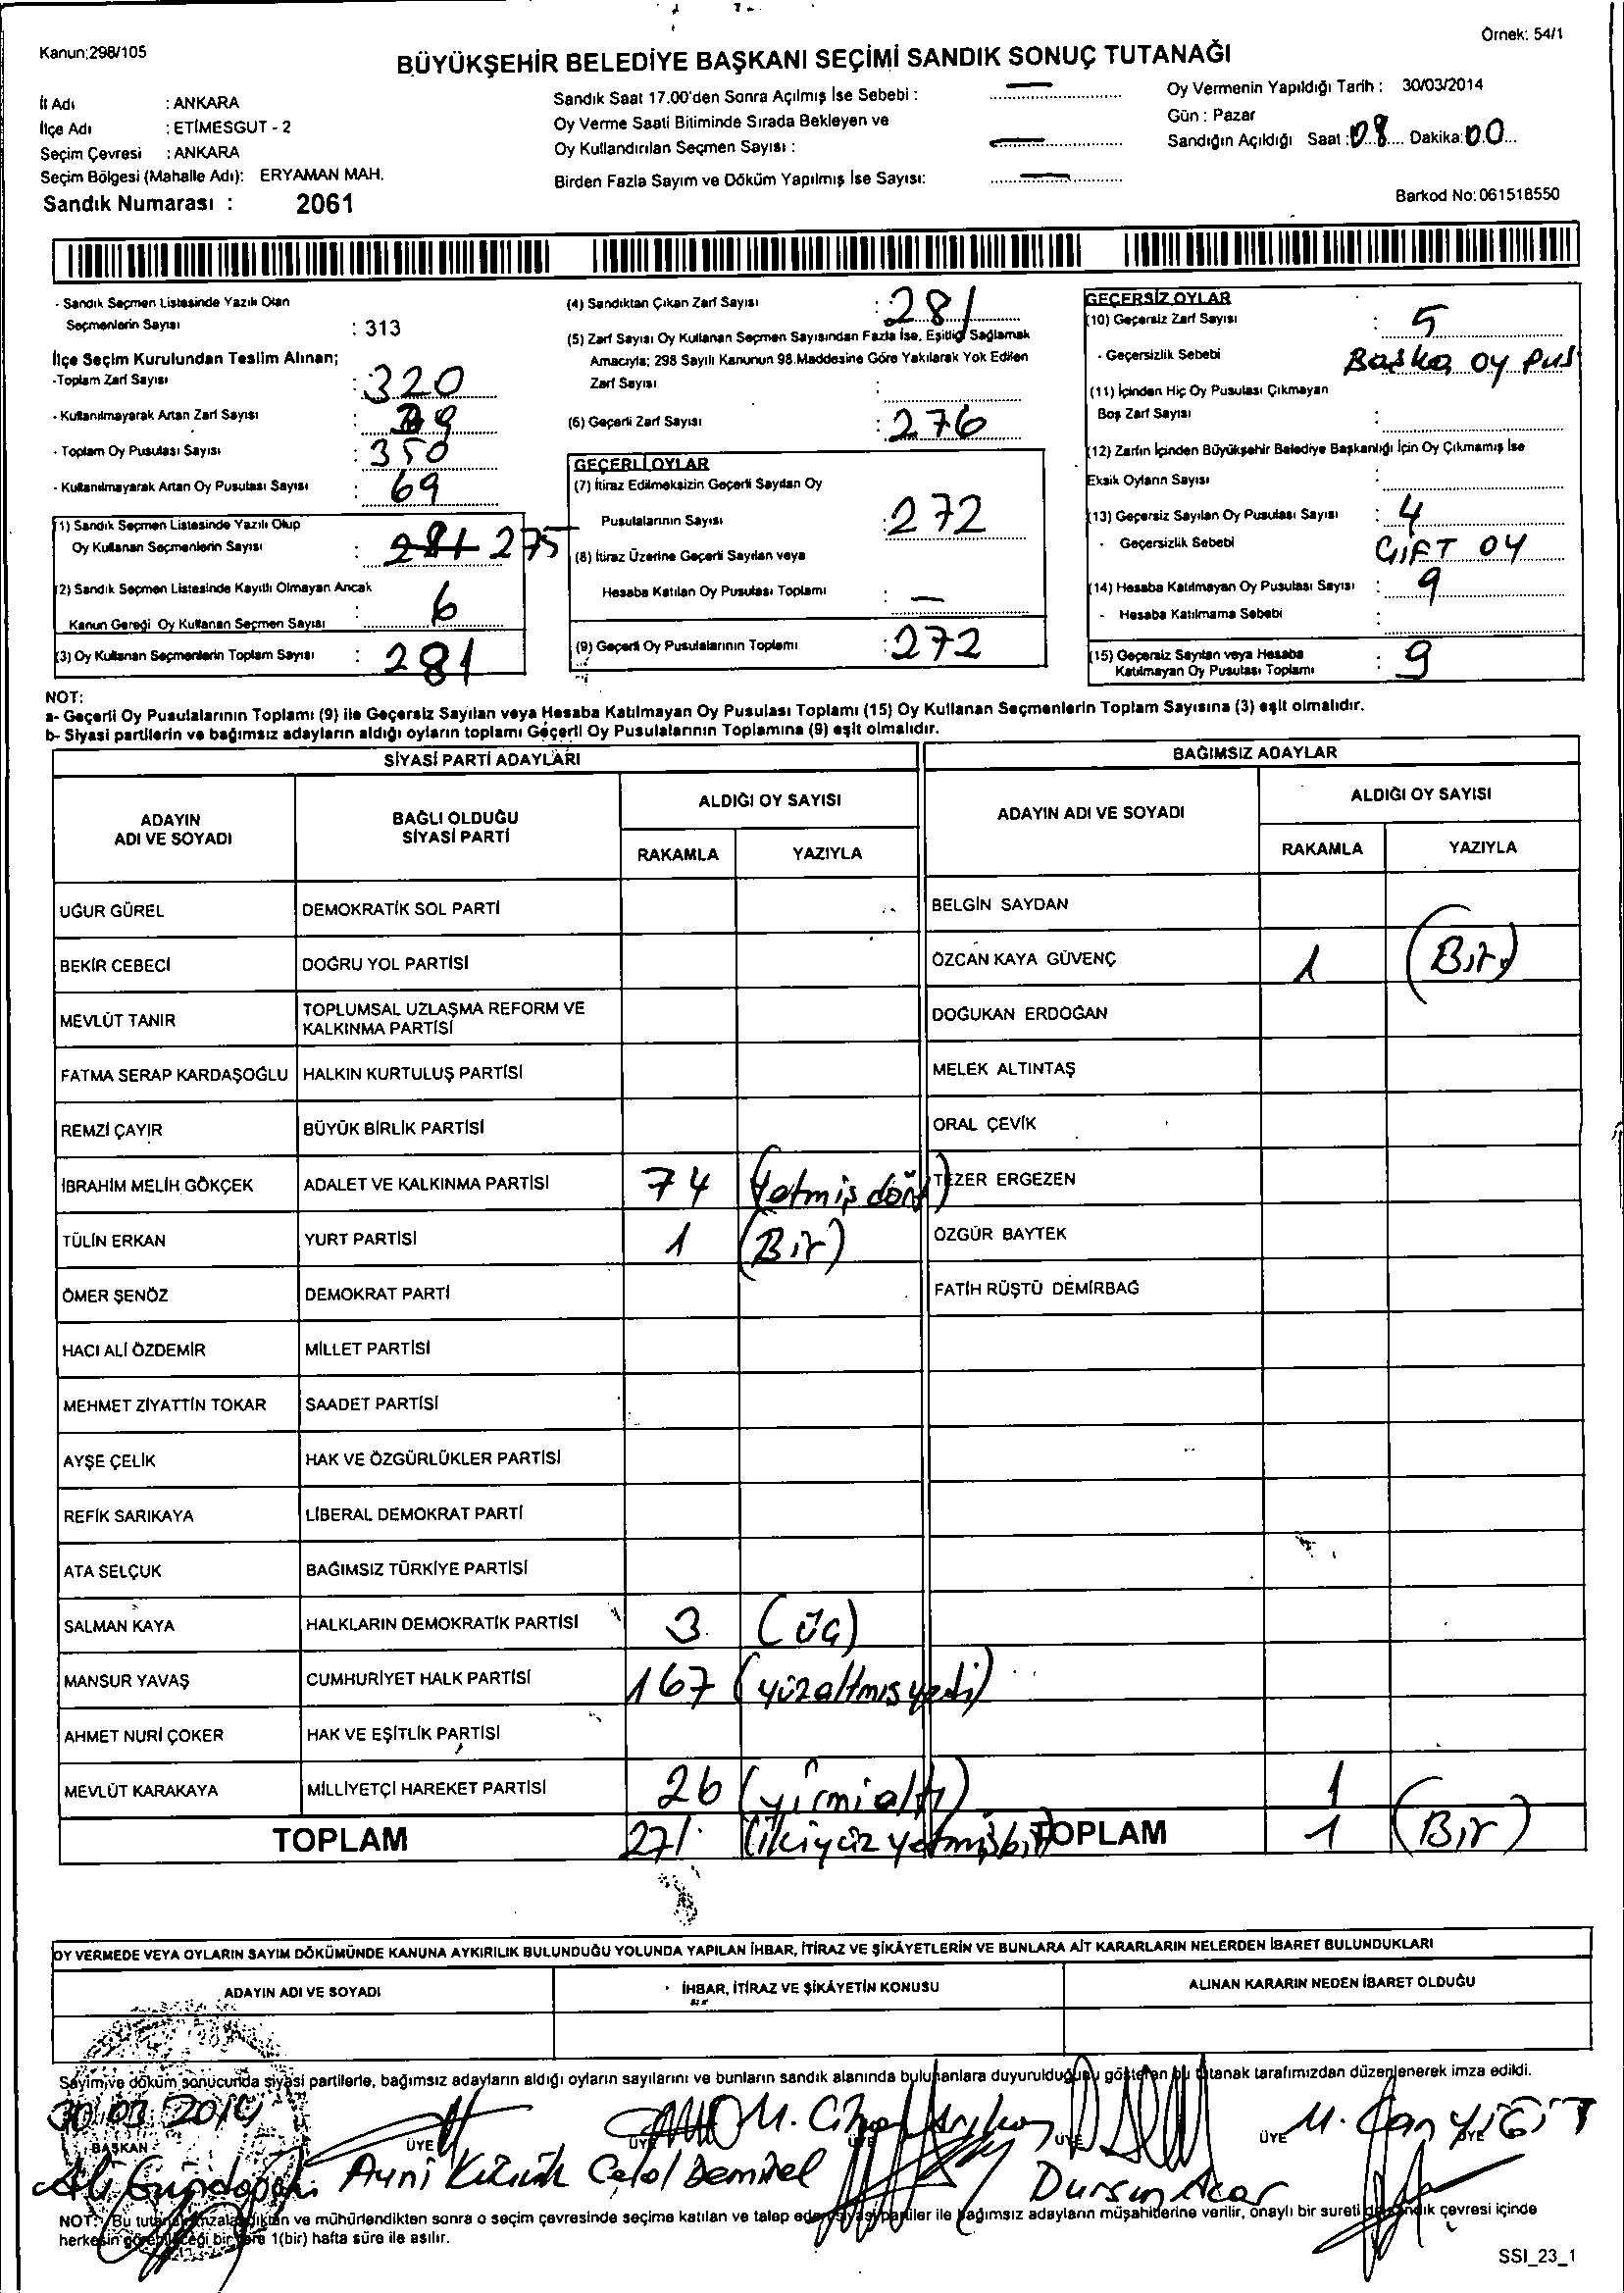 Kanun:298/105
Örnek: 54/1
BÜYÜKŞEHİR BELEDİYE BAŞKANI SEÇİMİ SANDIK SONUÇ TUTANAĞI
İl Adı : ANKARA
İlçe Adı : ETİMESGUT - 2
Seçim Çevresi : ANKARA
Seçim Bölgesi (Mahalle Adı): ERYAMAN MAH.
Sandık Numarası : 2061
Sandık Saat 17.00'den Sonra Açılmış İse Sebebi : —
Oy Verme Saati Bitiminde Sırada Bekleyen ve
Oy Kullandırılan Seçmen Sayısı : —
Birden Fazla Sayım ve Döküm Yapılmış İse Sayısı: —
Oy Vermenin Yapıldığı Tarih : 30/03/2014
Gün : Pazar
Sandığın Açıldığı Saat : 08 Dakika: 00
Barkod No:061518550
- Sandık Seçmen Listesinde Yazılı Olan
Seçmenlerin Sayısı : 313
İlçe Seçim Kurulundan Teslim Alınan;
-Toplam Zarf Sayısı : 320
- Kullanılmayarak Artan Zarf Sayısı : 39
- Toplam Oy Pusulası Sayısı : 350
- Kullanılmayarak Artan Oy Pusulası Sayısı : 69
(1) Sandık Seçmen Listesinde Yazılı Olup
Oy Kullanan Seçmenlerin Sayısı : 281 275
(2) Sandık Seçmen Listesinde Kayıtlı Olmayan Ancak
Kanun Gereği Oy Kullanan Seçmen Sayısı : 6
(3) Oy Kullanan Seçmenlerin Toplam Sayısı : 281
(4) Sandıktan Çıkan Zarf Sayısı : 281
(5) Zarf Sayısı Oy Kullanan Seçmen Sayısından Fazla İse, Eşitliği Sağlamak
Amacıyla; 298 Sayılı Kanunun 98.Maddesine Göre Yakılarak Yok Edilen
Zarf Sayısı :
(6) Geçerli Zarf Sayısı : 276
GEÇERLİ OYLAR
(7) İtiraz Edilmeksizin Geçerli Sayılan Oy
Pusulalarının Sayısı : 272
(8) İtiraz Üzerine Geçerli Sayılan veya
Hesaba Katılan Oy Pusulası Toplamı : —
(9) Geçerli Oy Pusulalarının Toplamı : 272
GEÇERSİZ OYLAR
(10) Geçersiz Zarf Sayısı : 5
- Geçersizlik Sebebi Başka oy pus
(11) İçinden Hiç Oy Pusulası Çıkmayan
Boş Zarf Sayısı :
(12) Zarfın İçinden Büyükşehir Belediye Başkanlığı İçin Oy Çıkmamış İse
Eksik Oyların Sayısı :
(13) Geçersiz Sayılan Oy Pusulası Sayısı : 4
- Geçersizlik Sebebi ÇİFT OY
(14) Hesaba Katılmayan Oy Pusulası Sayısı : 9
- Hesaba Katılmama Sebebi :
(15) Geçersiz Sayılan veya Hesaba
Katılmayan Oy Pusulası Toplamı : 9
NOT:
a- Geçerli Oy Pusulalarının Toplamı (9) ile Geçersiz Sayılan veya Hesaba Katılmayan Oy Pusulası Toplamı (15) Oy Kullanan Seçmenlerin Toplam Sayısına (3) eşit olmalıdır.
b- Siyasi partilerin ve bağımsız adayların aldığı oyların toplamı Geçerli Oy Pusulalarının Toplamına (9) eşit olmalıdır.
SİYASİ PARTİ ADAYLARI
ADAYIN
ADI VE SOYADI
BAĞLI OLDUĞU
SİYASİ PARTİ
ALDIĞI OY SAYISI
RAKAMLA YAZIYLA
UĞUR GÜREL DEMOKRATİK SOL PARTİ
BEKİR CEBECİ DOĞRU YOL PARTİSİ
MEVLÜT TANIR TOPLUMSAL UZLAŞMA REFORM VE
KALKINMA PARTİSİ
FATMA SERAP KARDAŞOĞLU HALKIN KURTULUŞ PARTİSİ
REMZİ ÇAYIR BÜYÜK BİRLİK PARTİSİ
İBRAHİM MELİH GÖKÇEK ADALET VE KALKINMA PARTİSİ 74 (Yetmiş dört)
TÜLİN ERKAN YURT PARTİSİ 1 (Bir)
ÖMER ŞENÖZ DEMOKRAT PARTİ
HACI ALİ ÖZDEMİR MİLLET PARTİSİ
MEHMET ZİYATTİN TOKAR SAADET PARTİSİ
AYŞE ÇELİK HAK VE ÖZGÜRLÜKLER PARTİSİ
REFİK SARIKAYA LİBERAL DEMOKRAT PARTİ
ATA SELÇUK BAĞIMSIZ TÜRKİYE PARTİSİ
SALMAN KAYA HALKLARIN DEMOKRATİK PARTİSİ 3 (üç)
MANSUR YAVAŞ CUMHURİYET HALK PARTİSİ 167 (yüzaltmışyedi)
AHMET NURİ ÇOKER HAK VE EŞİTLİK PARTİSİ
MEVLÜT KARAKAYA MİLLİYETÇİ HAREKET PARTİSİ 26 (yirmialtı)
TOPLAM 271 (ikiyüzyetmişbir)
BAĞIMSIZ ADAYLAR
ADAYIN ADI VE SOYADI
ALDIĞI OY SAYISI
RAKAMLA YAZIYLA
BELGİN SAYDAN
ÖZCAN KAYA GÜVENÇ 1 (Bir)
DOĞUKAN ERDOĞAN
MELEK ALTINTAŞ
ORAL ÇEVİK
TEZER ERGEZEN
ÖZGÜR BAYTEK
FATİH RÜŞTÜ DEMİRBAĞ
1
TOPLAM 1 (Bir)
OY VERMEDE VEYA OYLARIN SAYIM DÖKÜMÜNDE KANUNA AYKIRILIK BULUNDUĞU YOLUNDA YAPILAN İHBAR, İTİRAZ VE ŞİKÂYETLERİN VE BUNLARA AİT KARARLARIN NELERDEN İBARET BULUNDUKLARI
ADAYIN ADI VE SOYADI
İHBAR, İTİRAZ VE ŞİKÂYETİN KONUSU
ALINAN KARARIN NEDEN İBARET OLDUĞU
Sayım ve döküm sonucunda siyasi partilerle, bağımsız adayların aldığı oyların sayılarını ve bunların sandık alanında bulunanlara duyurulduğunu gösteren bu tutanak tarafımızdan düzenlenerek imza edildi.
30.03.2014
BAŞKAN ÜYE ÜYE ÜYE ÜYE ÜYE ÜYE
M. Can YİĞİT
Ali Gündoğdu Celal Demirel Dursun Acar
NOT: Bu tutanak imzalandıktan ve mühürlendikten sonra o seçim çevresinde seçime katılan ve talep eden siyasi partiler ile bağımsız adayların müşahitlerine verilir, onaylı bir sureti de sandık çevresi içinde
herkesin görebileceği bir yere 1(bir) hafta süre ile asılır.
SSI_23_1